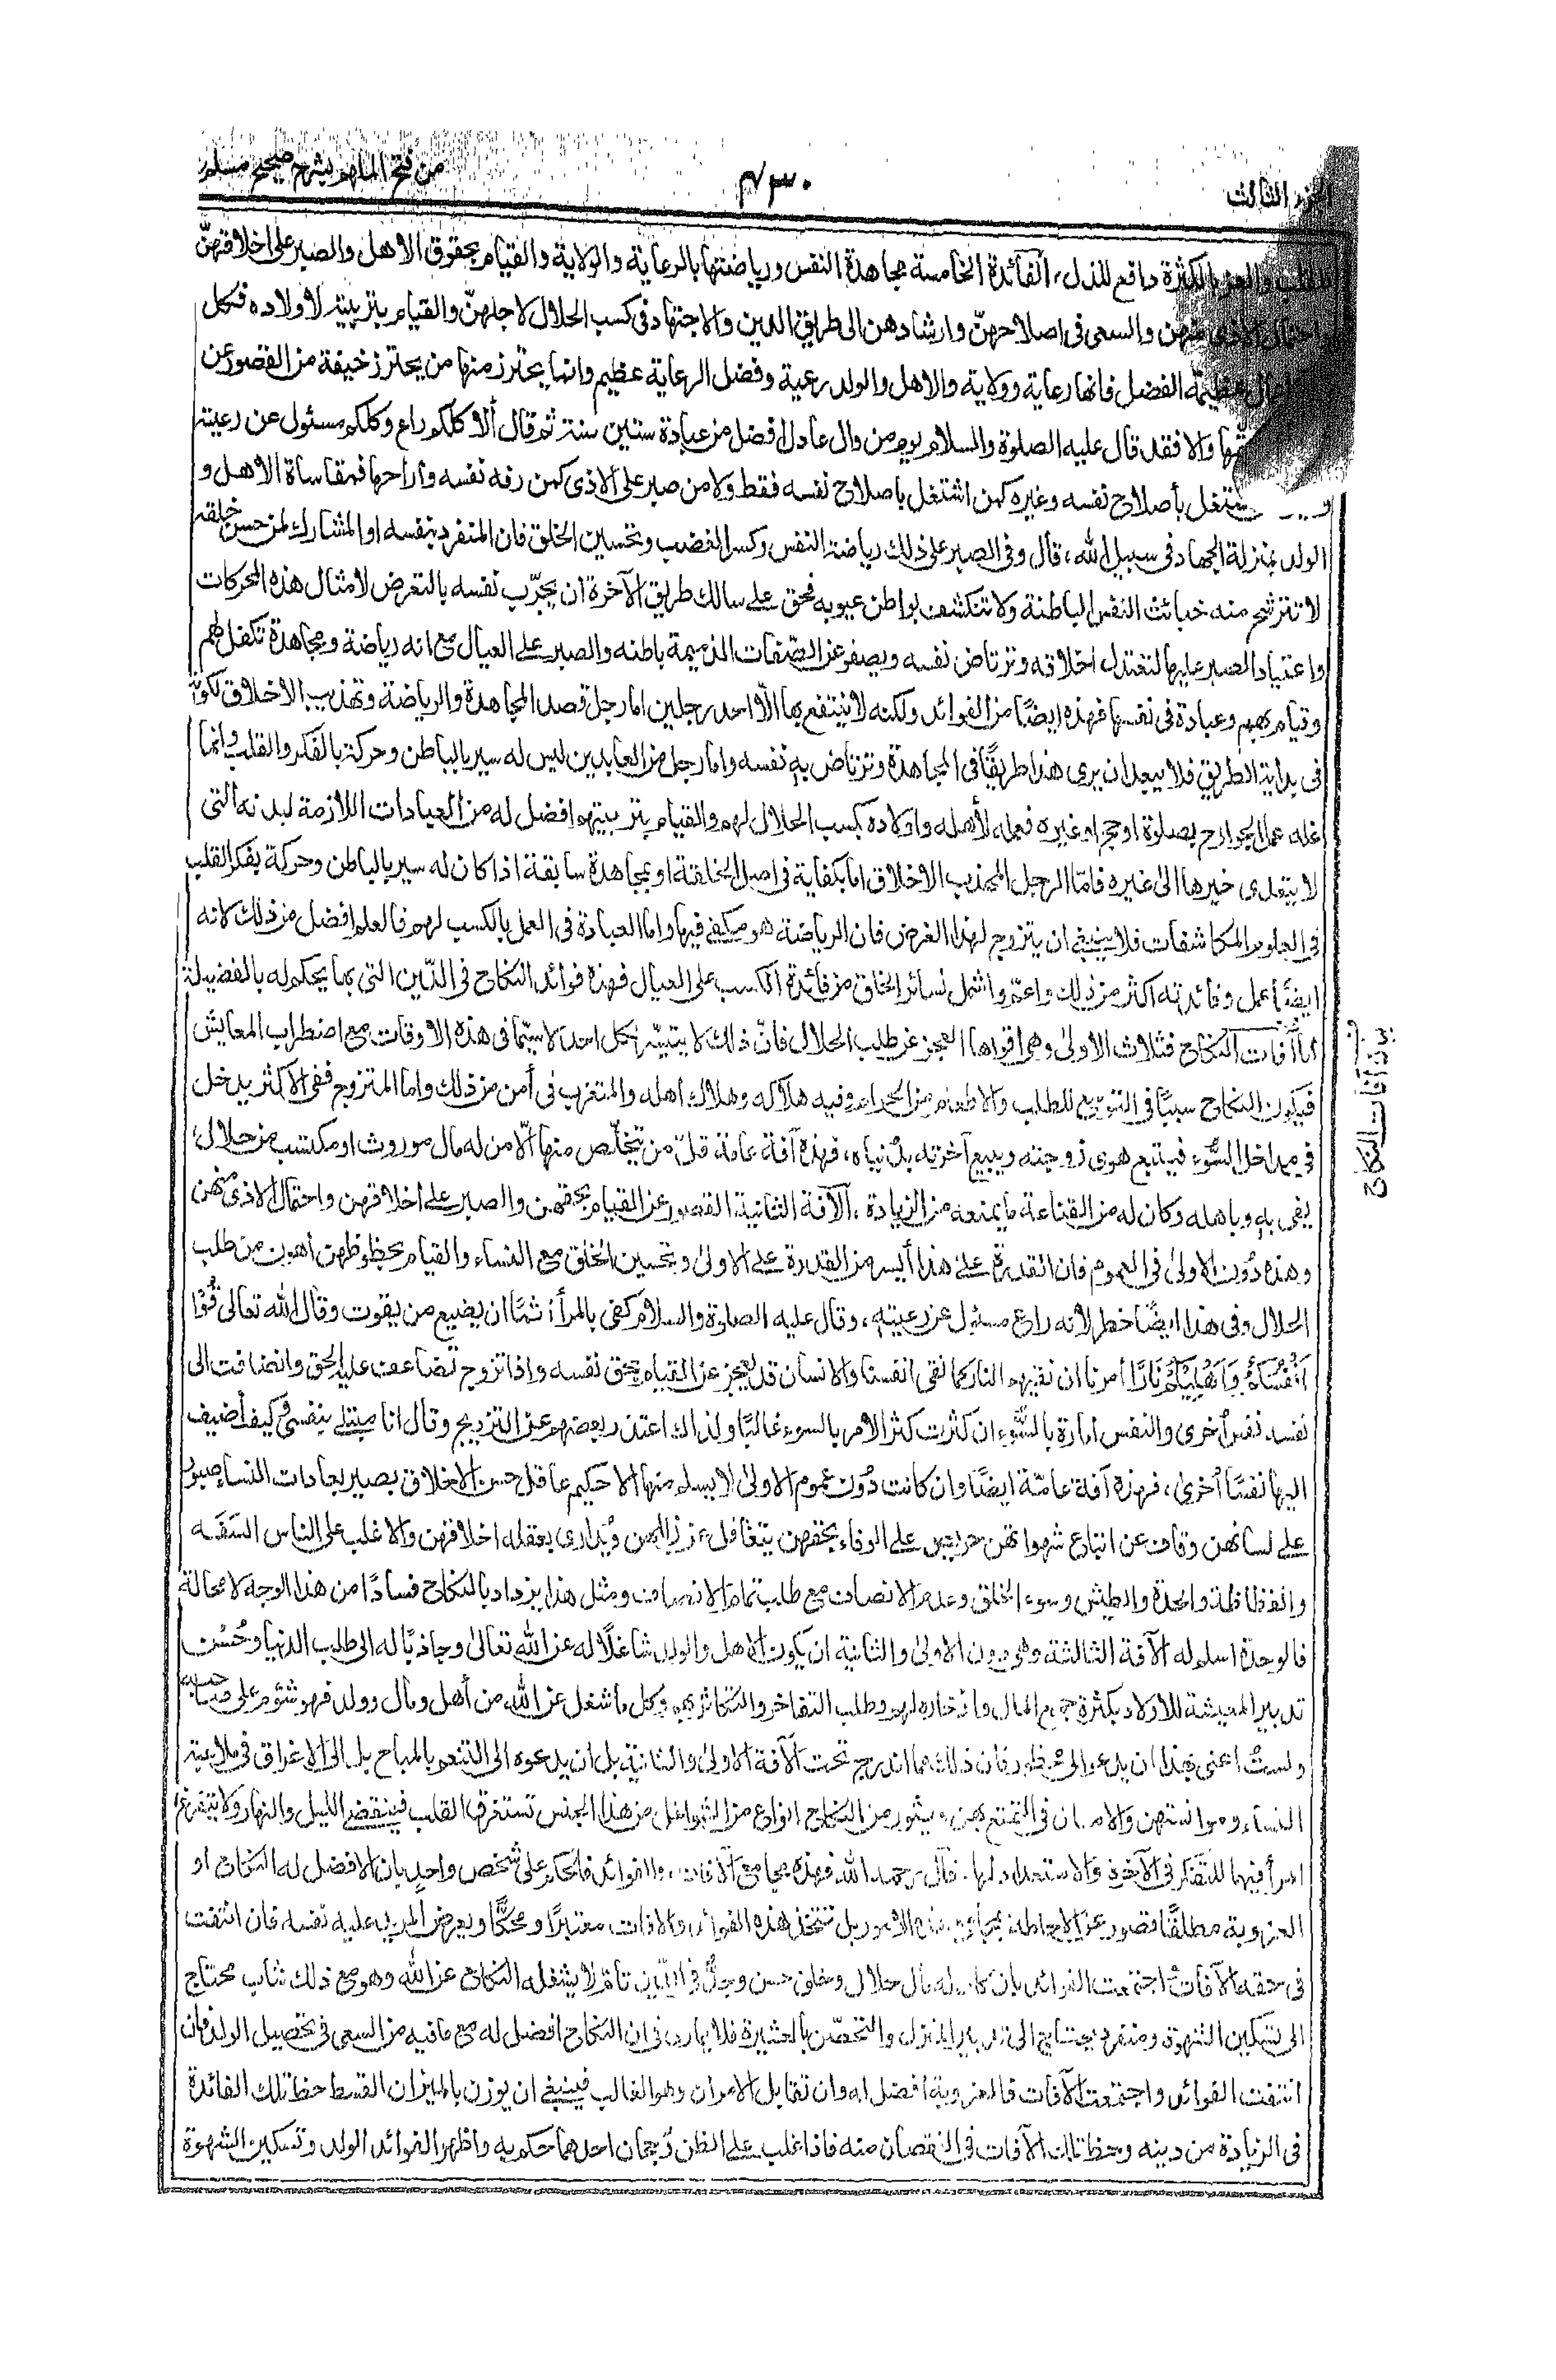 الجزء الثالث
٤٣٠
من فتح الملهم بشرح صحيح مسلم
للقلب والعز بالكثرة دافع للذل، الفائدة الخامسة مجاهدة النفس ورياضتها بالرعاية والولاية والقيام بحقوق الاهل والصبر على اخلاقهنّ
احتمال الاذى منهن والسعى فى اصلاحهنّ وارشادهن الى طريق الدين والاجتهاد فى كسب الحلال لاجلهنّ والقيام بتربيته لاولاده فكل
اعمال عظيمة الفضل فانها رعاية وولاية والاهل والولد رعية وفضل الرعاية عظيم وانما يحترز منها من يحترز خيفة من القصور عن
والا فقد قال عليه الصلوة والسلام يوم من وال عادل افضل من عبادة ستين سنة ثم قال ألا كلكم راع وكلكم مسئول عن رعيته
اشتغل بأصلاح نفسه وغيره كمن اشتغل باصلاح نفسه فقط ولا من صبر على الاذى كمن رفه نفسه وأراحها فمقاساة الاهل و
الولد بمنزلة الجهاد فى سبيل الله، قال وفى الصبر على ذلك رياضة النفس وكسر الغضب وتحسين الخلق فان المنفرد بنفسه او المشارك لمن حسن خلقه
لا تترشح منه خبائث النفس الباطنة ولا تنكشف بواطن عيوبه فحق على سالك طريق الآخرة ان يجرّب نفسه بالتعرض لامثال هذه المحركات
واعتياد الصبر عليها لتعتدل اخلاقه وترتاض نفسه ويصفو عن الصفات الذميمة باطنه والصبر على العيال مع انه رياضة ومجاهدة تكفل لهم
وقيام بهم وعبادة فى نفسها فهذه ايضًا من الفوائد ولكنه لا ينتفع بها الّا احد رجلين اما رجل قصد المجاهدة والرياضة وتهذيب الاخلاق لكونه
فى بداية الطريق فلا يبعد ان يرى هذا طريقًا فى المجاهدة وترتاض به نفسه واما رجل من العابدين ليس له سير بالباطن وحركة بالفكر والقلب وانما
عمله عمل الجوارح بصلوة او حج او غيره فعمله لأهله واولاده بكسب الحلال لهم والقيام بتربيتهم افضل له من العبادات اللازمة لبدنه التى
لا يتعدى خيرها الى غيره فامّا الرجل المهذب الاخلاق اما بكفاية فى اصل الخلقة او بمجاهدة سابقة اذا كان له سير بالباطن وحركة بفكر القلب
فى العلوم والمكاشفات فلا ينبغى ان يتزوج لهذا الغرض فان الرياضة هو مكفى فيها واما العبادة فى العمل بالكسب لهم فالعلم افضل من ذلك لانه
ايضًا عمل وفائدته اكثر من ذلك واعمّ واشمل لسائر الخلق من فائدة الكسب على العيال فهذه فوائد النكاح فى الدّين التى بها يحكم له بالفضيلة
اما آفات النكاح فثلاث الاولى وهى اقواها العجز عن طلب الحلال فانّ ذلك لا يتيسّر لكل احد لا سيّما فى هذه الاوقات مع اضطراب المعايش
فيكون النكاح سببًا فى التوسع للطلب والاطعام من الحرام وفيه هلاكه وهلاك اهله والمتعزب فى أمن من ذلك واما المتزوج ففى الاكثر يدخل
فى مداخل السُّوء فيتبع هوى زوجته ويبيع آخرته بدُنياه، فهذه آفة عامة، قلّ من يتخلّص منها الّا من له مال موروث او مكتسب من حلال
يفى به وباهله وكان له من القناعة ما يمنعه من الزيادة، الآفة الثانية القصور عن القيام بحقهن والصبر على اخلاقهن واحتمال الاذى منهن
وهذه دُون الاولى فى العموم فان القدرة على هذا أيسر من القدرة على الاولى وتحسين الخلق مع النساء والقيام بحظوظهن اهون من طلب
الحلال وفى هذا ايضًا خطر لانه راع مسئول عن رعيته، وقال عليه الصلوة والسلام كفى بالمرأ اثمًا ان يضيع من يقوت وقال الله تعالى قُوْا
اَنْفُسَكُمْ وَاَهْلِيْكُمْ نَارًا أمرنا ان نقيهم النار كما نقى انفسنا والانسان قد يعجز عن القيام بحق نفسه واذا تزوج تضاعف عليه الحق وانضافت الى
نفسه نفس أخرى والنفس امارة بالسُّوء ان كثرت كثر الامر بالسوء غالبًا ولذلك اعتذر بعضهم عن التزويج وقال انا مبتلى بنفسى وكيف أضيف
اليها نفسًا أخرى، فهذه آفة عامّة ايضًا وان كانت دُون عموم الاولى لا يسلم منها الا حكيم عاقل حسن الاخلاق بصير بعادات النساء صبور
على لسانهن وقاف عن اتباع شهواتهن حريص على الوفاء بحقهن يتغافل عن زللهن ويُدارى بعقله اخلاقهن والاغلب على الناس السَفَه
والفظاظة والحدة والطيش وسوء الخلق وعدم الانصاف مع طلب تمام الانصاف ومثل هذا يزداد بالنكاح فسادًا من هذا الوجه لا محالة
فالوحدة اسلم له الآفة الثالثة وهى دون الاولى والثانية ان يكون الاهل والولد شاغلًا له عن الله تعالى وجاذبًا له الى طلب الدنيا وحُسْن
تدبير المعيشة للاولاد بكثرة جمع المال وادخاره لهم وطلب التفاخر والتكاثر بهم وكل ما شغل عن الله من أهل ومال وولد فهو شئوم على صاحبه
ولستُ اعنى بهذا ان يدعو الى محظور فان ذلك مما اندرج تحت الآفة الاولى والثانية بل ان يدعوه الى التنعم بالمباح بل الى الاغراق فى ملاعبة
النساء وموانستهن والامعان فى التمتع بهن، ويثور من النكاح انواع من الشواغل من هذا الجنس تستغرق القلب فينقضى الليل والنهار ولا يتفرغ
المرأ فيها للتفكر فى الآخرة والاستعداد لها. قال رحمه الله فهذه مجامع الآفات والفوائد فالحكم على شخص واحدٍ بان الافضل له النكاح او
العزوبة مطلقًا قصور عن الاحاطة بمجامع هذه الامور بل تتخذ هذه الفوائد والافات معتبرًا ومحكًّا ويعرض المريد عليه نفسه فان انتفت
فى حقه الآفات واجتمعت الفوائد بان كان له مال حلال وخلق حسن وجدٌّ فى الدّين تام لا يشغله النكاح عن الله وهو مع ذلك شاب محتاج
الى تسكين الشهوة ومنفرد يحتاج الى تدبير المنزل والتحصّن بالعشيرة فلا يمارى فى ان النكاح افضل له مع ما فيه من السعى فى تحصيل الولد فان
انتفت الفوائد واجتمعت الآفات فالعزوبة افضل له وان تقابل الامران وهو الغالب فينبغى ان يوزن بالميزان القسط حظ تلك الفائدة
فى الزيادة من دينه وحظ تلك الآفات فى النقصان منه فاذا غلب على الظن رُجحان احدهما حكم به واظهر الفوائد الولد وتسكين الشهوة
بيان آفات النكاح